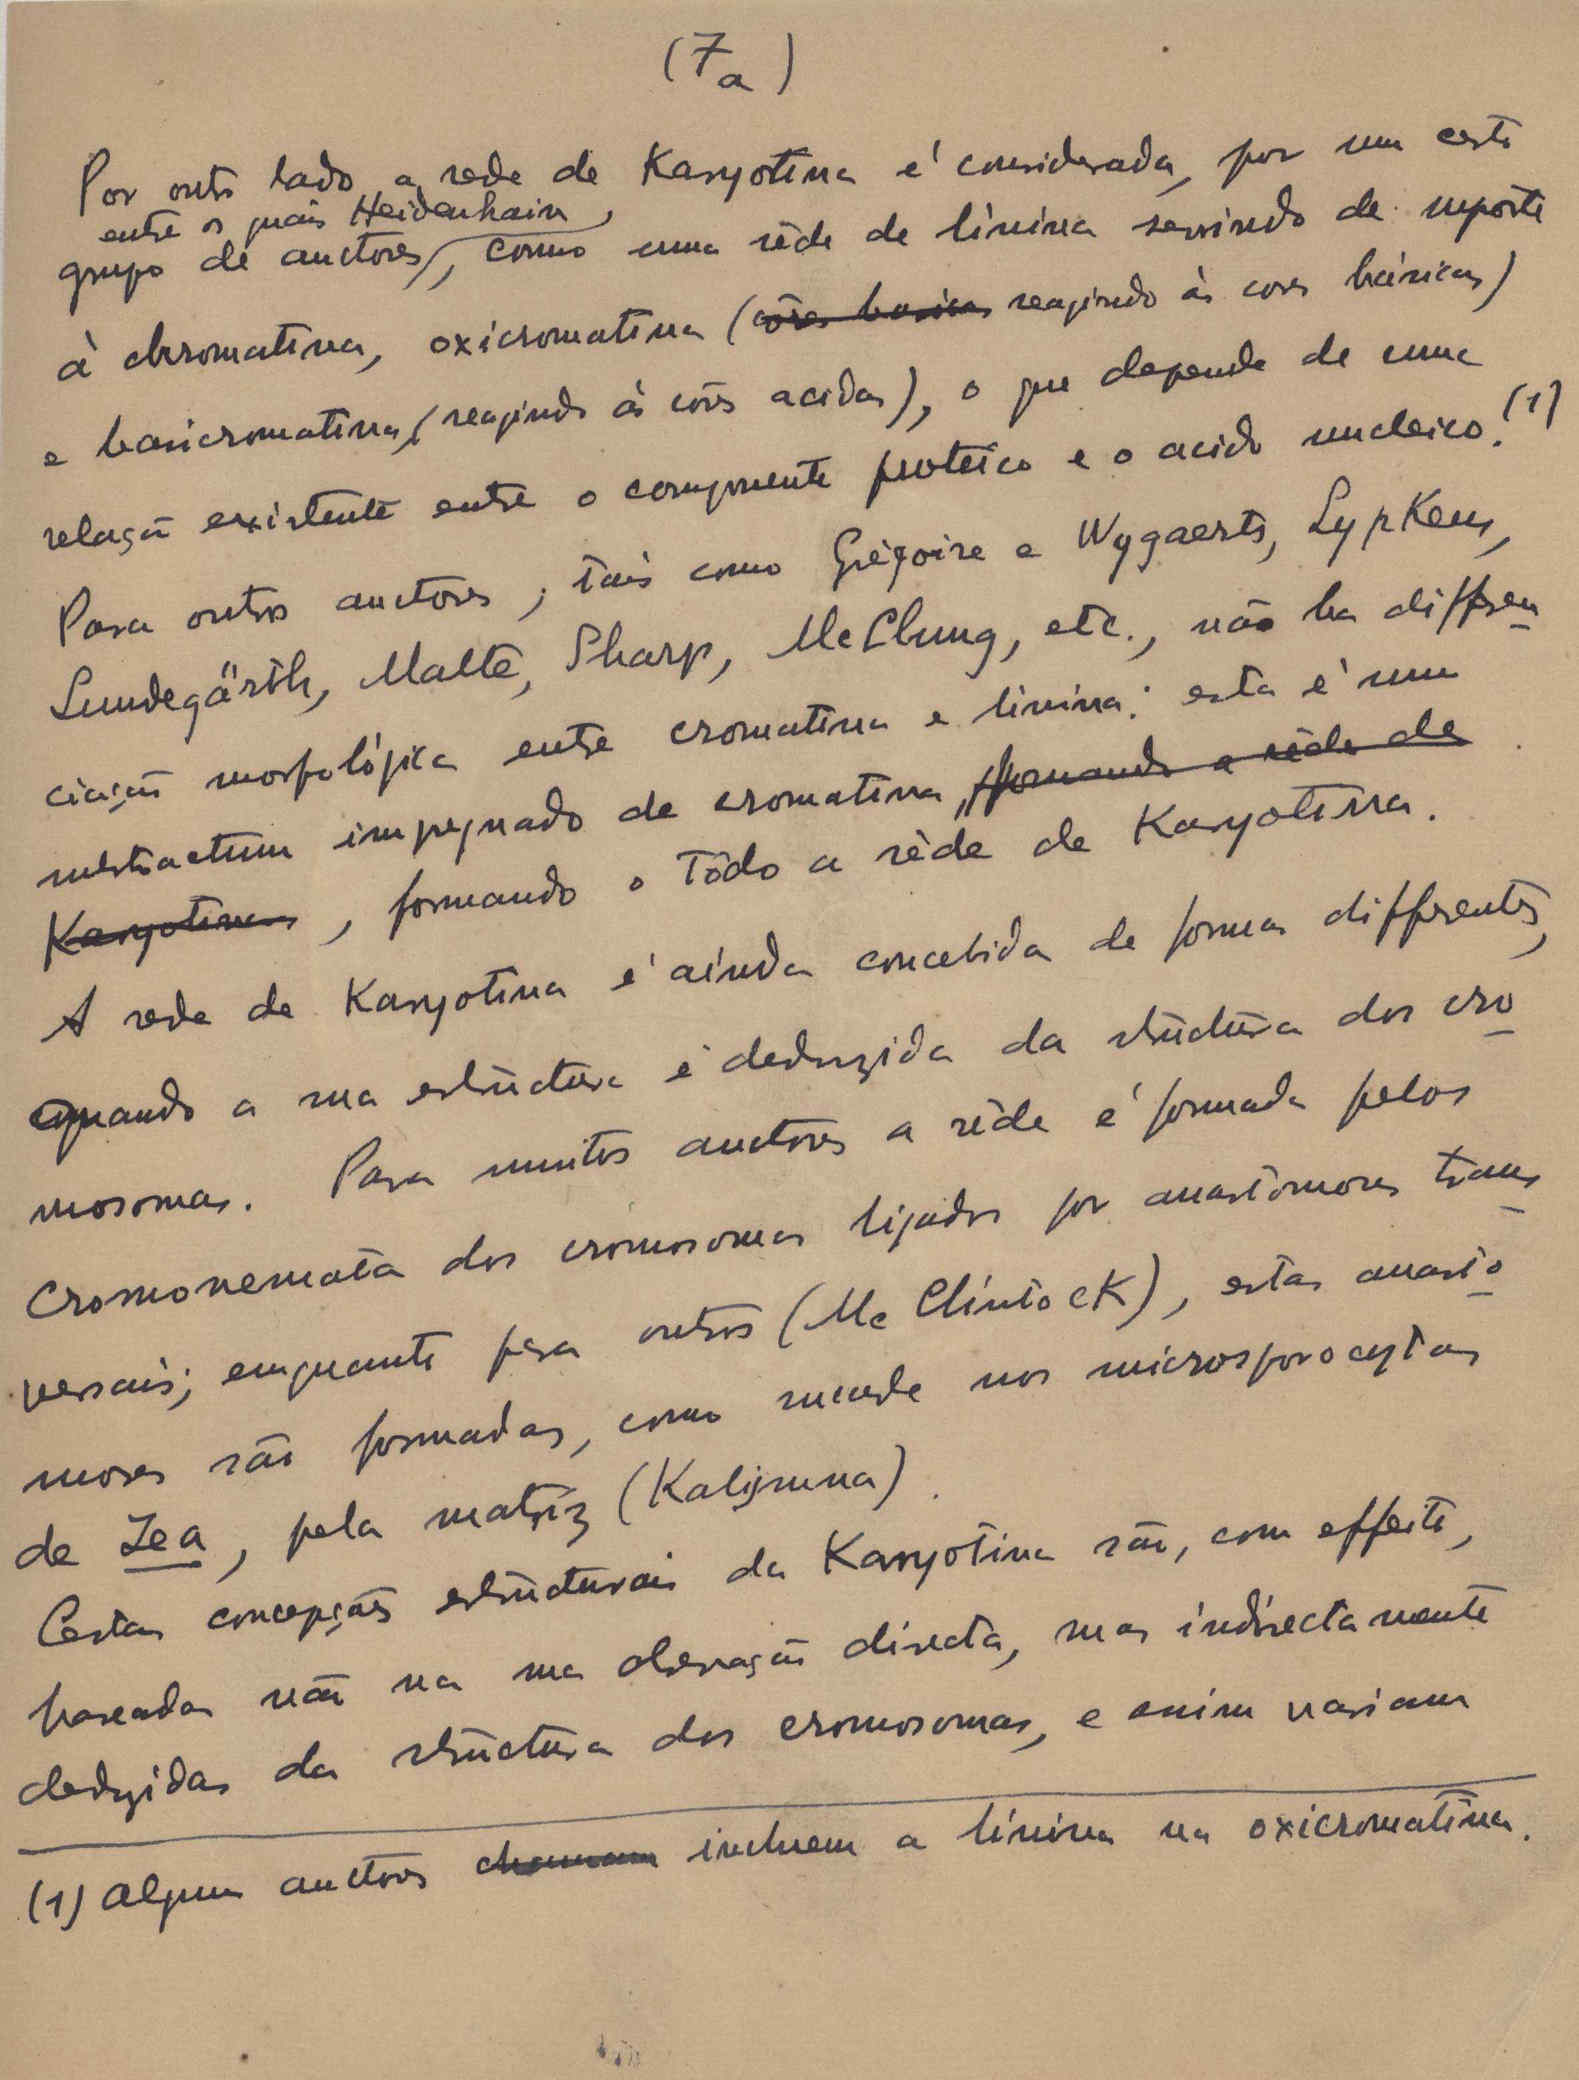 (7a)
Por outro lado, a rede de Karyotina é considerada, por um certo
entre os quais Heidenhain,
grupo de auctores, como uma rêde de linina servindo de suporte
à chromatina, oxicromatina (côres basicas reagindo às cores básicas)
e basicromatina (reagindo ás côres acidas), o que depende de uma
relação existente entre o componente proteico e o acido nucleico.(1)
Para outros auctores, tais como Grégoire e Wygaerts, Lypkens,
Lundegärdh, Malte, Sharp, McClung, etc., não ha differen
ciação morfológica entre cromatina e linina: esta é um
substractum impregnado de cromatina, formando a rêde de
Karyotina, formando o Tôdo a rède de Karyotina.
A rede de Karyotina é ainda concebida de formas differentes,
quando a sua estructura é deduzida da structura dos cro
mosomas. Para muitos auctores a rêde é formada pelos
cromonemata dos cromosomas ligados por anastomoses trans
versais; emquanto para outros (Mc Clintock), estas anasto
moses são formadas, como sucede nos microsporocytas
de Zea, pela matriz (Kalymma).
Certas concepções estructurais da Karyotina são, com effeito,
baseadas não na sua observação directa, mas indirectamente
deduzidas da structura dos cromosomas, e assim variam
(1) Alguns auctores chamam incluem a linina na oxicromatina.